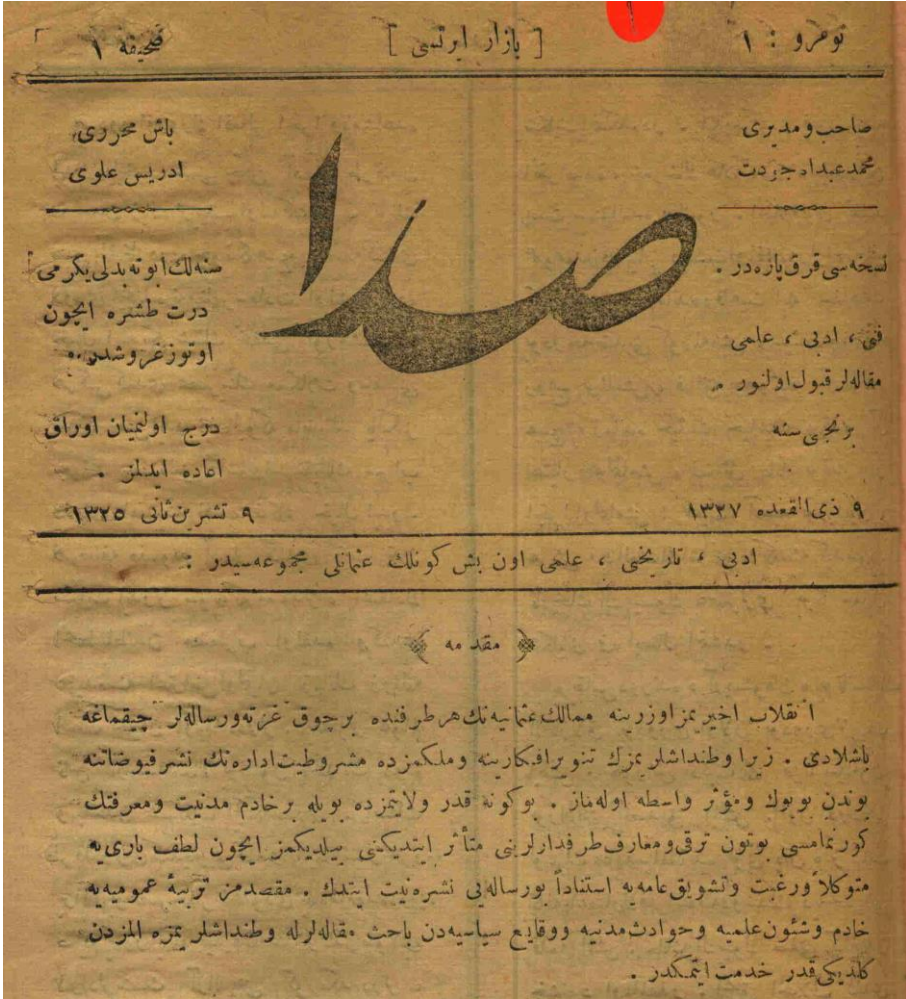 نومرو : ١
[ بازار ايرتسی ]
صحيفه ١
صاحب و مديری
محمد عبداد جودت
باش محرری
ادريس علوی
صدا
نسخه‌سی قرق پاره‌در .
فنی ، ادبی ، علمی
مقاله‌لر قبول اولنور .
برنجی سنه
٩ ذی القعده ١٣٢٧
سنه‌لك ابونه بدلی يكرمی
درت طشره ايچون
اوتوز غروشدر .
درج اولنميان اوراق
اعاده ايدلمز .
٩ تشرين ثانی ١٣٢٥
ادبی ، تاريخی ، علمی اون بش كونلك عثمانلی مجموعه‌سيدر :
مقدمه
انقلاب اخيرمز اوزرينه ممالك عثمانيه‌نك هر طرفنده برچوق غزته و رساله‌لر چيقماغه
باشلادی . زيرا وطنداشلريمزك تنوير افكارينه وملكمزده مشروطيت اداره‌نك نشر فيوضاتنه
بوندن بويوك ومؤثر واسطه اوله‌ماز . بوكونه قدر ولايتمزده بويله برخادم مدنيت ومعرفتك
كورنمامسی بوتون ترقی ومعارف طرفدارلرينی متأثر ايتديكنی بيلديكمز ايچون لطف باری‌يه
متوكلاً ورغبت وتشويق عامه‌يه استناداً بورساله‌يی نشره نيت ايتدك . مقصدمز تربيۀ عموميه‌يه
خادم وشئون علميه وحوادث مدنيه ووقايع سياسيه‌دن باحث مقاله‌لرله وطنداشلريمزه المزدن
كلديكی قدر خدمت ايتمكدر .